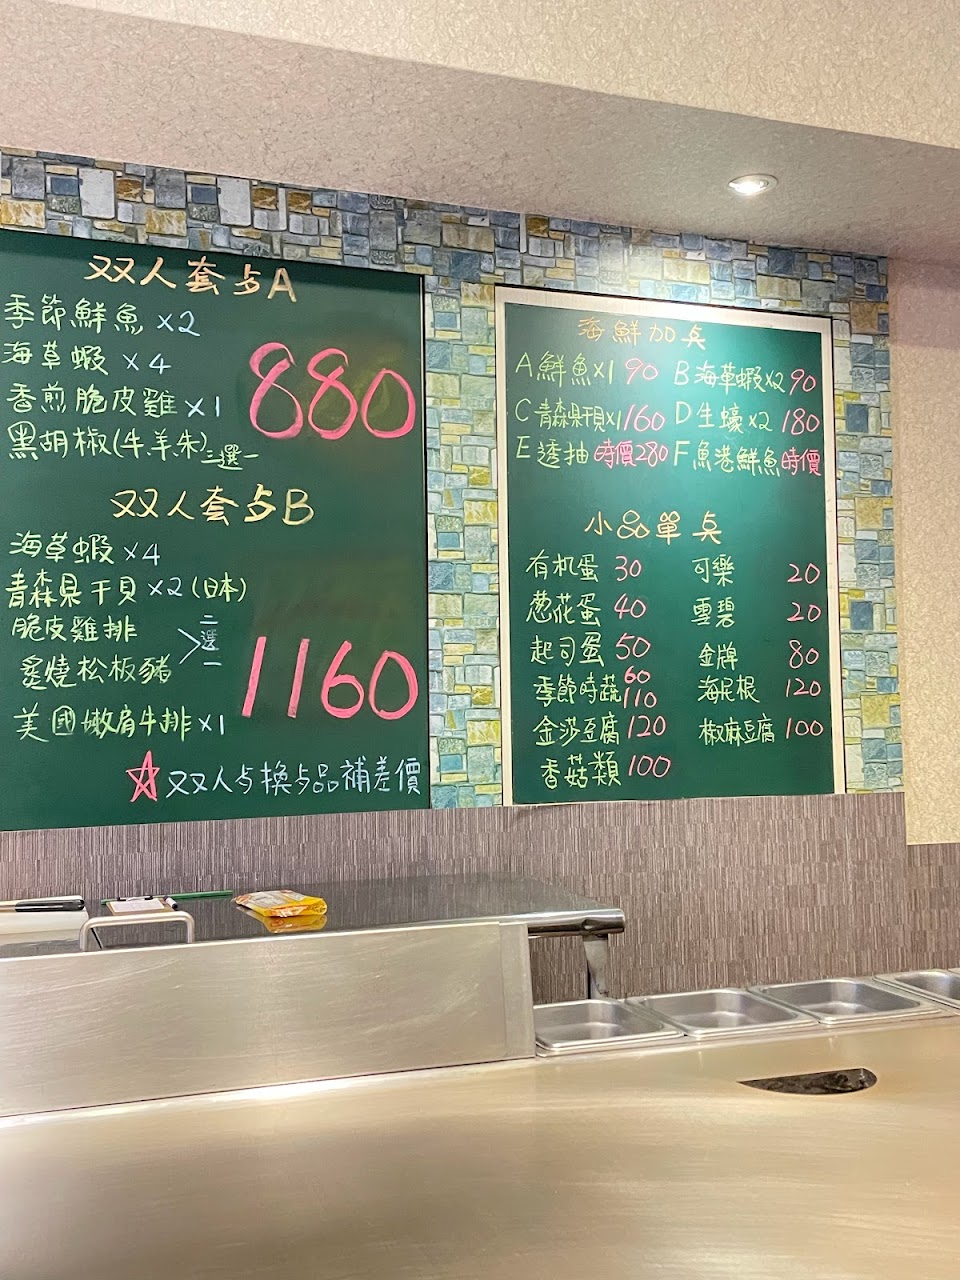 双人套歺A
季節鮮魚 x2
海草蝦 x4
香煎脆皮雞 x1
黑胡椒(牛.羊.朱)三選一
880
双人套歺B
海草蝦 x4
青森県干貝 x2 (日本)
脆皮雞排
炙燒松板豬
二選一
美國嫩肩牛排 x1
1160
☆双人歺換歺品補差價
海鮮加点
A鮮魚x1 90 B海草蝦x2 90
C青森県干貝x1 160 D生蠔x2 180
E透抽 時價280 F魚港鮮魚 時價
小品單点
有机蛋 30 可樂 20
葱花蛋 40 雪碧 20
起司蛋 50 金牌 80
季節時蔬 60 110 海尼根 120
金莎豆腐 120 椒麻豆腐 100
香菇類 100